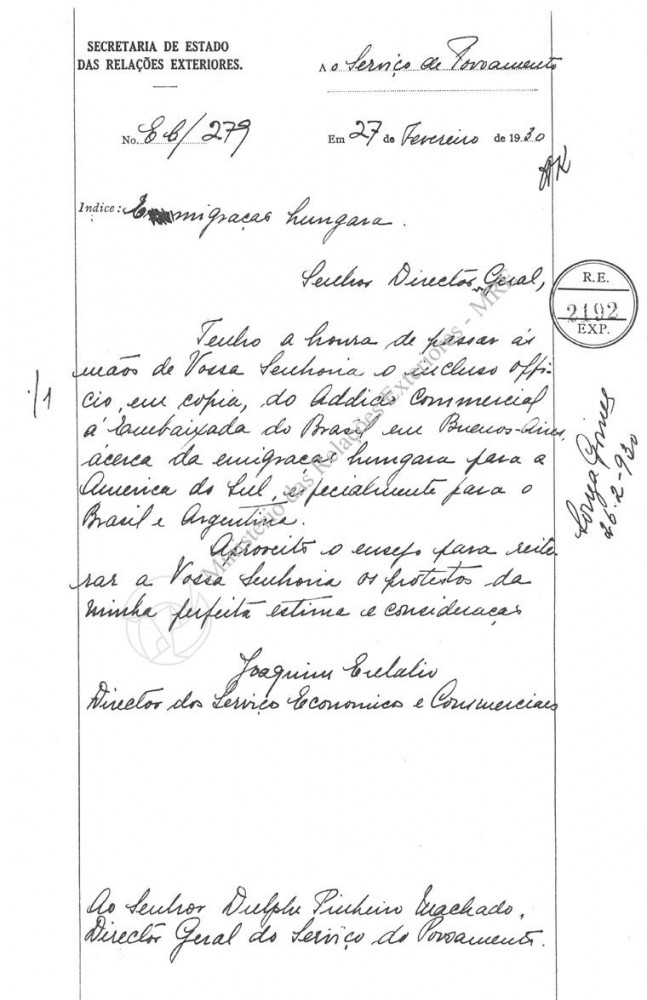 SECRETARIA DE ESTADO
DAS RELAÇÕES EXTERIORES.
Ao Serviço de Povoamento
No. EC/279
Em 27 de Fevereiro de 1930
Indice: Emigração hungara.
Senhor Director Geral,
R.E.
2192
EXP.
Tenho a honra de passar ás
mãos de Vossa Senhoria o incluso offi-
/1
cio, em copia, do Addido Commercial
á Embaixada do Brasil em Buenos-Aires,
ácerca da emigração hungara para a
America do Sul, especialmente para o
Brasil e Argentina.
Aproveito o ensejo para reite-
rar a Vossa Senhoria os protestos da
minha perfeita estima e consideração
Joaquim Eulalio
Director dos Serviços Economicos e Commerciaes
26-2-930
Ao Senhor Dulphe Pinheiro Machado,
Director Geral do Serviço do Povoamento.
Ministério das Relações Exteriores - MRE